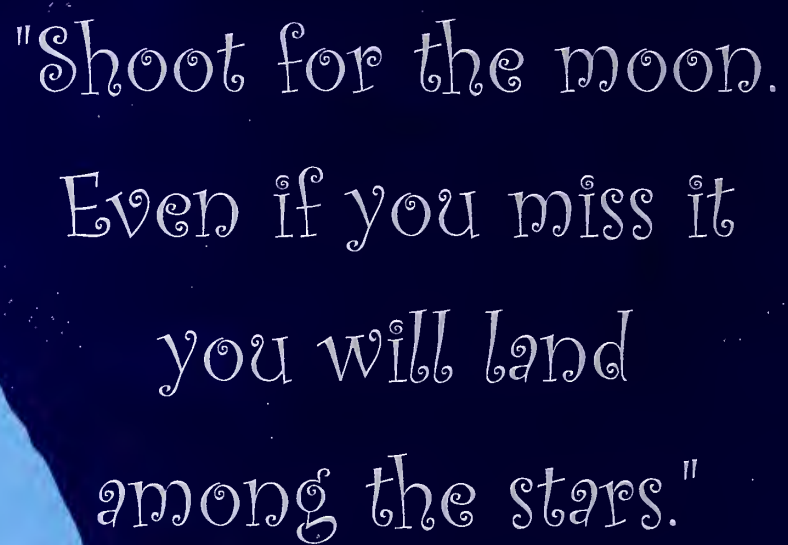 "Shoot for the moon.
Even if you miss it
you will land
among the stars."